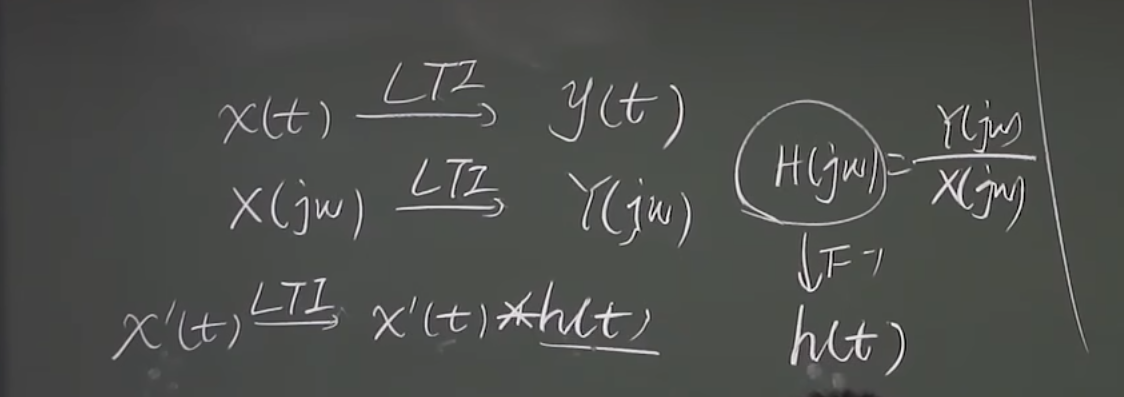 x(t) —LTI→ y(t)
X(jw) —LTI→ Y(jw)
x'(t) —LTI→ x'(t)*h(t)
H(jw) = Y(jw)/X(jw)
↓F⁻¹
h(t)